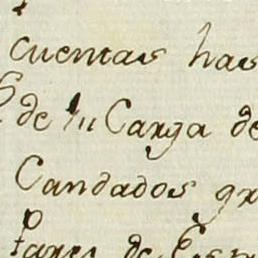 cuentas has
de su Carga de
Candados gr
Pares de Esp